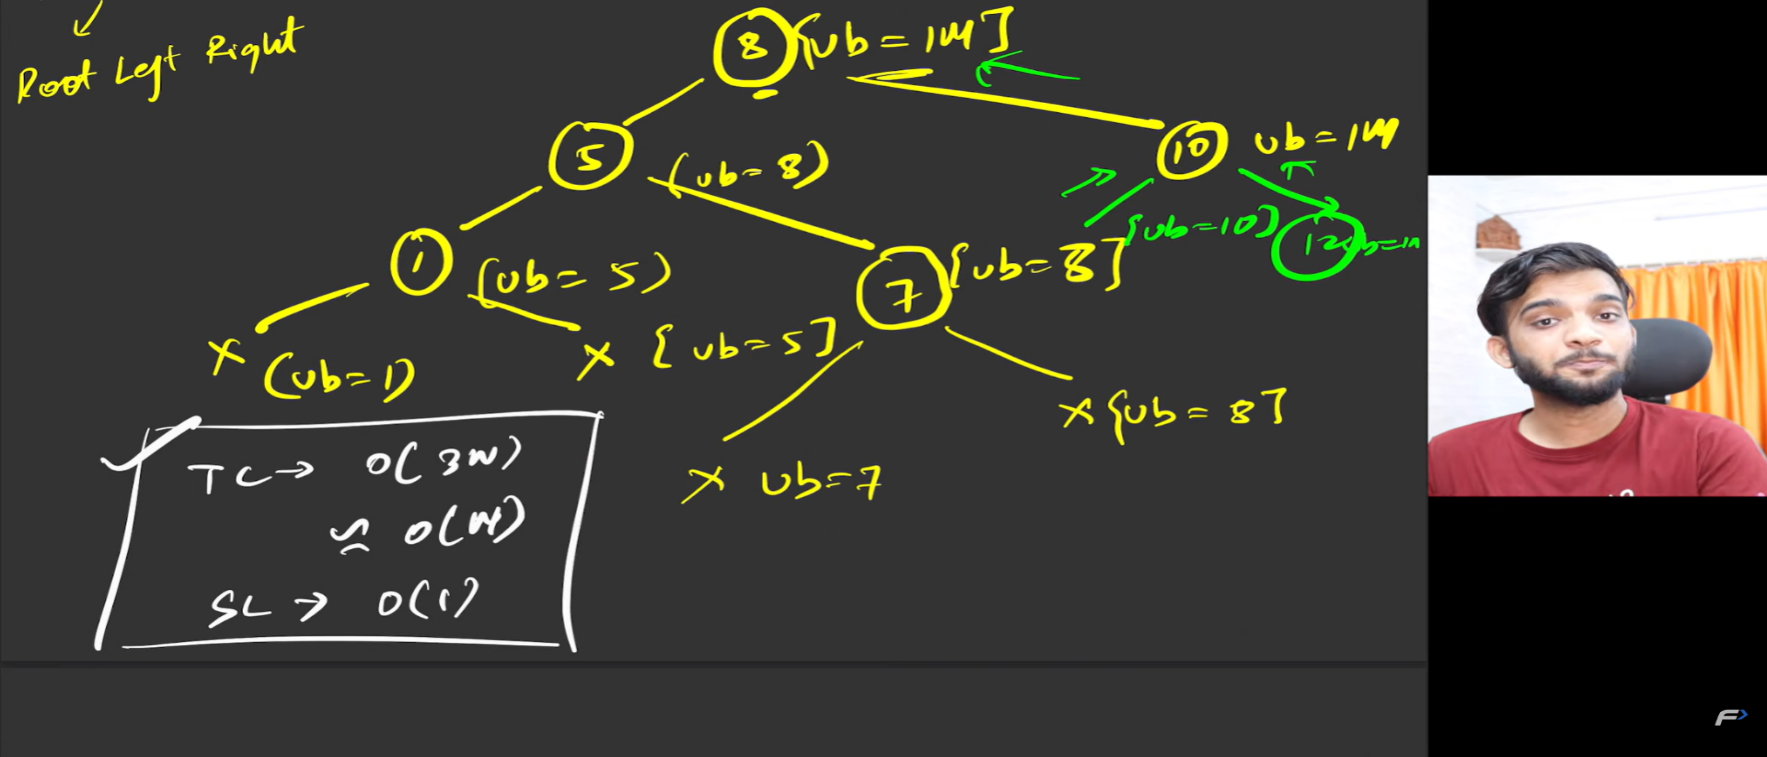 Root Left Right
8 [ub = IM]
5 (ub = 8)
10 ub = IM
1 (ub = 5)
7 [ub = 8]
[ub=10]
12
x (ub=1)
x [ub=5]
x ub=7
x [ub = 8]
TC → O(3N)
≈ O(N)
SC → O(1)